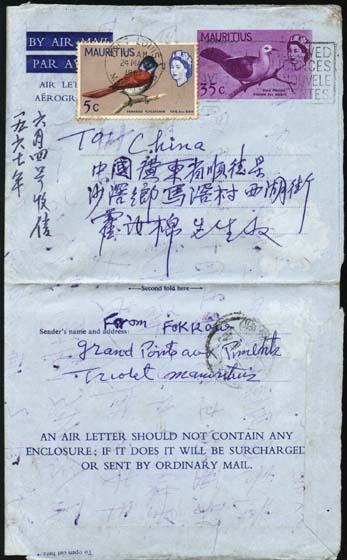 BY AIR MAIL
PAR AV
AIR LET
AÉROGR
MAURITIUS
5c
MAURITIUS
35c
To China
中國廣東省順德县
沙滘鄉馬滘村西湖街
霍汝棉先生收
六月四号收信
一九六七年
Second fold here
Sender's name and address:
From FOK
Grand Pointe aux Piments
Triolet mauritius
AN AIR LETTER SHOULD NOT CONTAIN ANY
ENCLOSURE; IF IT DOES IT WILL BE SURCHARGED
OR SENT BY ORDINARY MAIL.
To open cut here